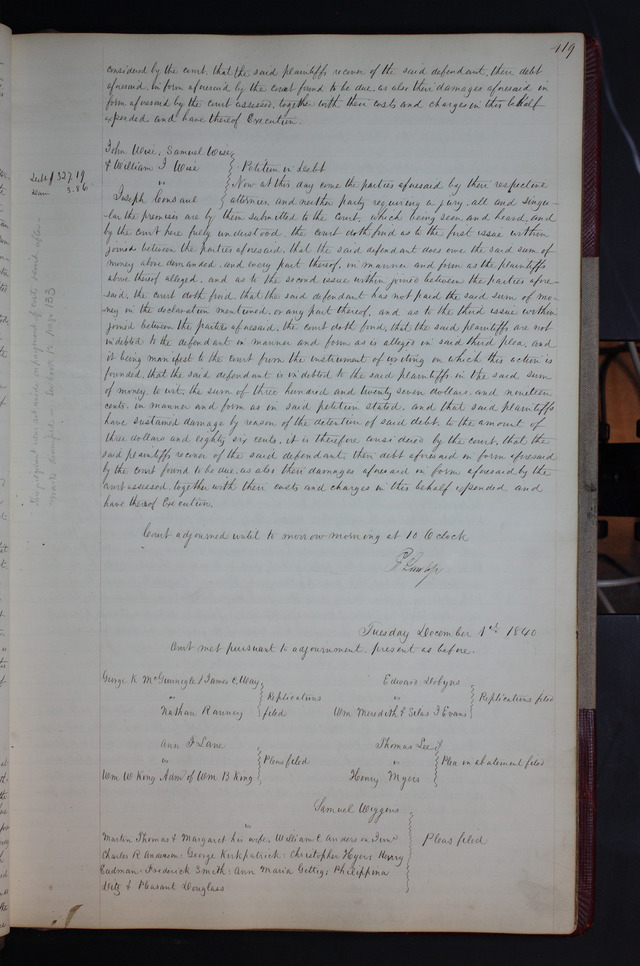 119
considered by the court, that the said plaintiffs recover of the said defendant, their debt
aforesaid, in form aforesaid by the court found to be due, as also their damages aforesaid in
form aforesaid by the court assessed, together with their costs and charges in this behalf
expended and have thereof Execution.
John Wise, Samuel Wise
& William J Wise
vs
Joseph
Petition in Debt
Debt $327.19
Dam 3.86
Now at this day come the parties aforesaid by their respective
attornies, and neither party requiring a jury, all and singu-
lar the premises are by them submitted to the court, which being seen and heard, and
by the court here fully understood, the court doth find as to the first issue within
joined between the parties aforesaid, that the said defendant does owe the said sum of
money above demanded, and every part thereof, in manner and form as the plaintiffs
above thereof alleged, and as to the second issue within joined between the parties afore-
said, the court doth find, that the said defendant has not paid the said sum of mo-
ney in the declaration mentioned, or any part thereof, and as to the third issue within
joined between the parties aforesaid, the court doth find, that the said plaintiffs are not
indebted to the defendant in manner and form as is alleged in said third plea, and
it being manifest to the court from the instrument of writing on which this action is
founded, that the said defendant is indebted to the said plaintiffs in the said sum
of money, to wit, the sum of three hundred and twenty seven dollars, and nineteen
cents, in manner and form as in said petition stated, and that said plaintiffs
have sustained damage by reason of the detention of said debt, to the amount of
three dollars and eighty six cents, it is therefore considered by the court, that the
said plaintiffs recover of the said defendant, their debt aforesaid in form aforesaid
by the court found to be due, as also their damages aforesaid in form aforesaid by the
court assessed, together with their costs and charges in this behalf expended and
have thereof Execution.
Page 183
Court adjourned until to morrow morning at 10 O'Clock
Tuesday December 1st 1840
Court met pursuant to adjournment, present as before.
George K McGunnegle & James C. Way
vs
Nathan Ranney
Replications
filed
Edward Dobyns
vs
Wm Meredith & Silas J Evans
Replications filed
Ann F Lane
vs
Wm W Kong Admr of Wm B Kong
Pleas filed
Thomas Lee
vs
Henry Myers
Plea in abatement filed
Samuel Wiggins
vs
Martin Thomas & Margaret his wife, William C. Anderson
Charles R Anderson, George Kirkpatrick, Christopher Hyer,
Cadman, Frederick Smith, Ann Maria Gettig, Philippina
& Pleasant Douglass
Pleas filed